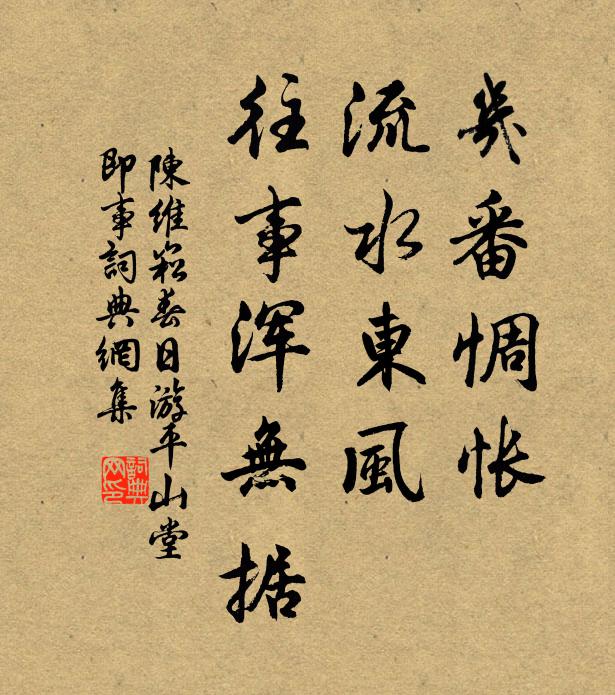 幾番惆怅
流水東風
往事渾無据
陳維崧春日游平山堂
即事詞典網集
詞典
网印